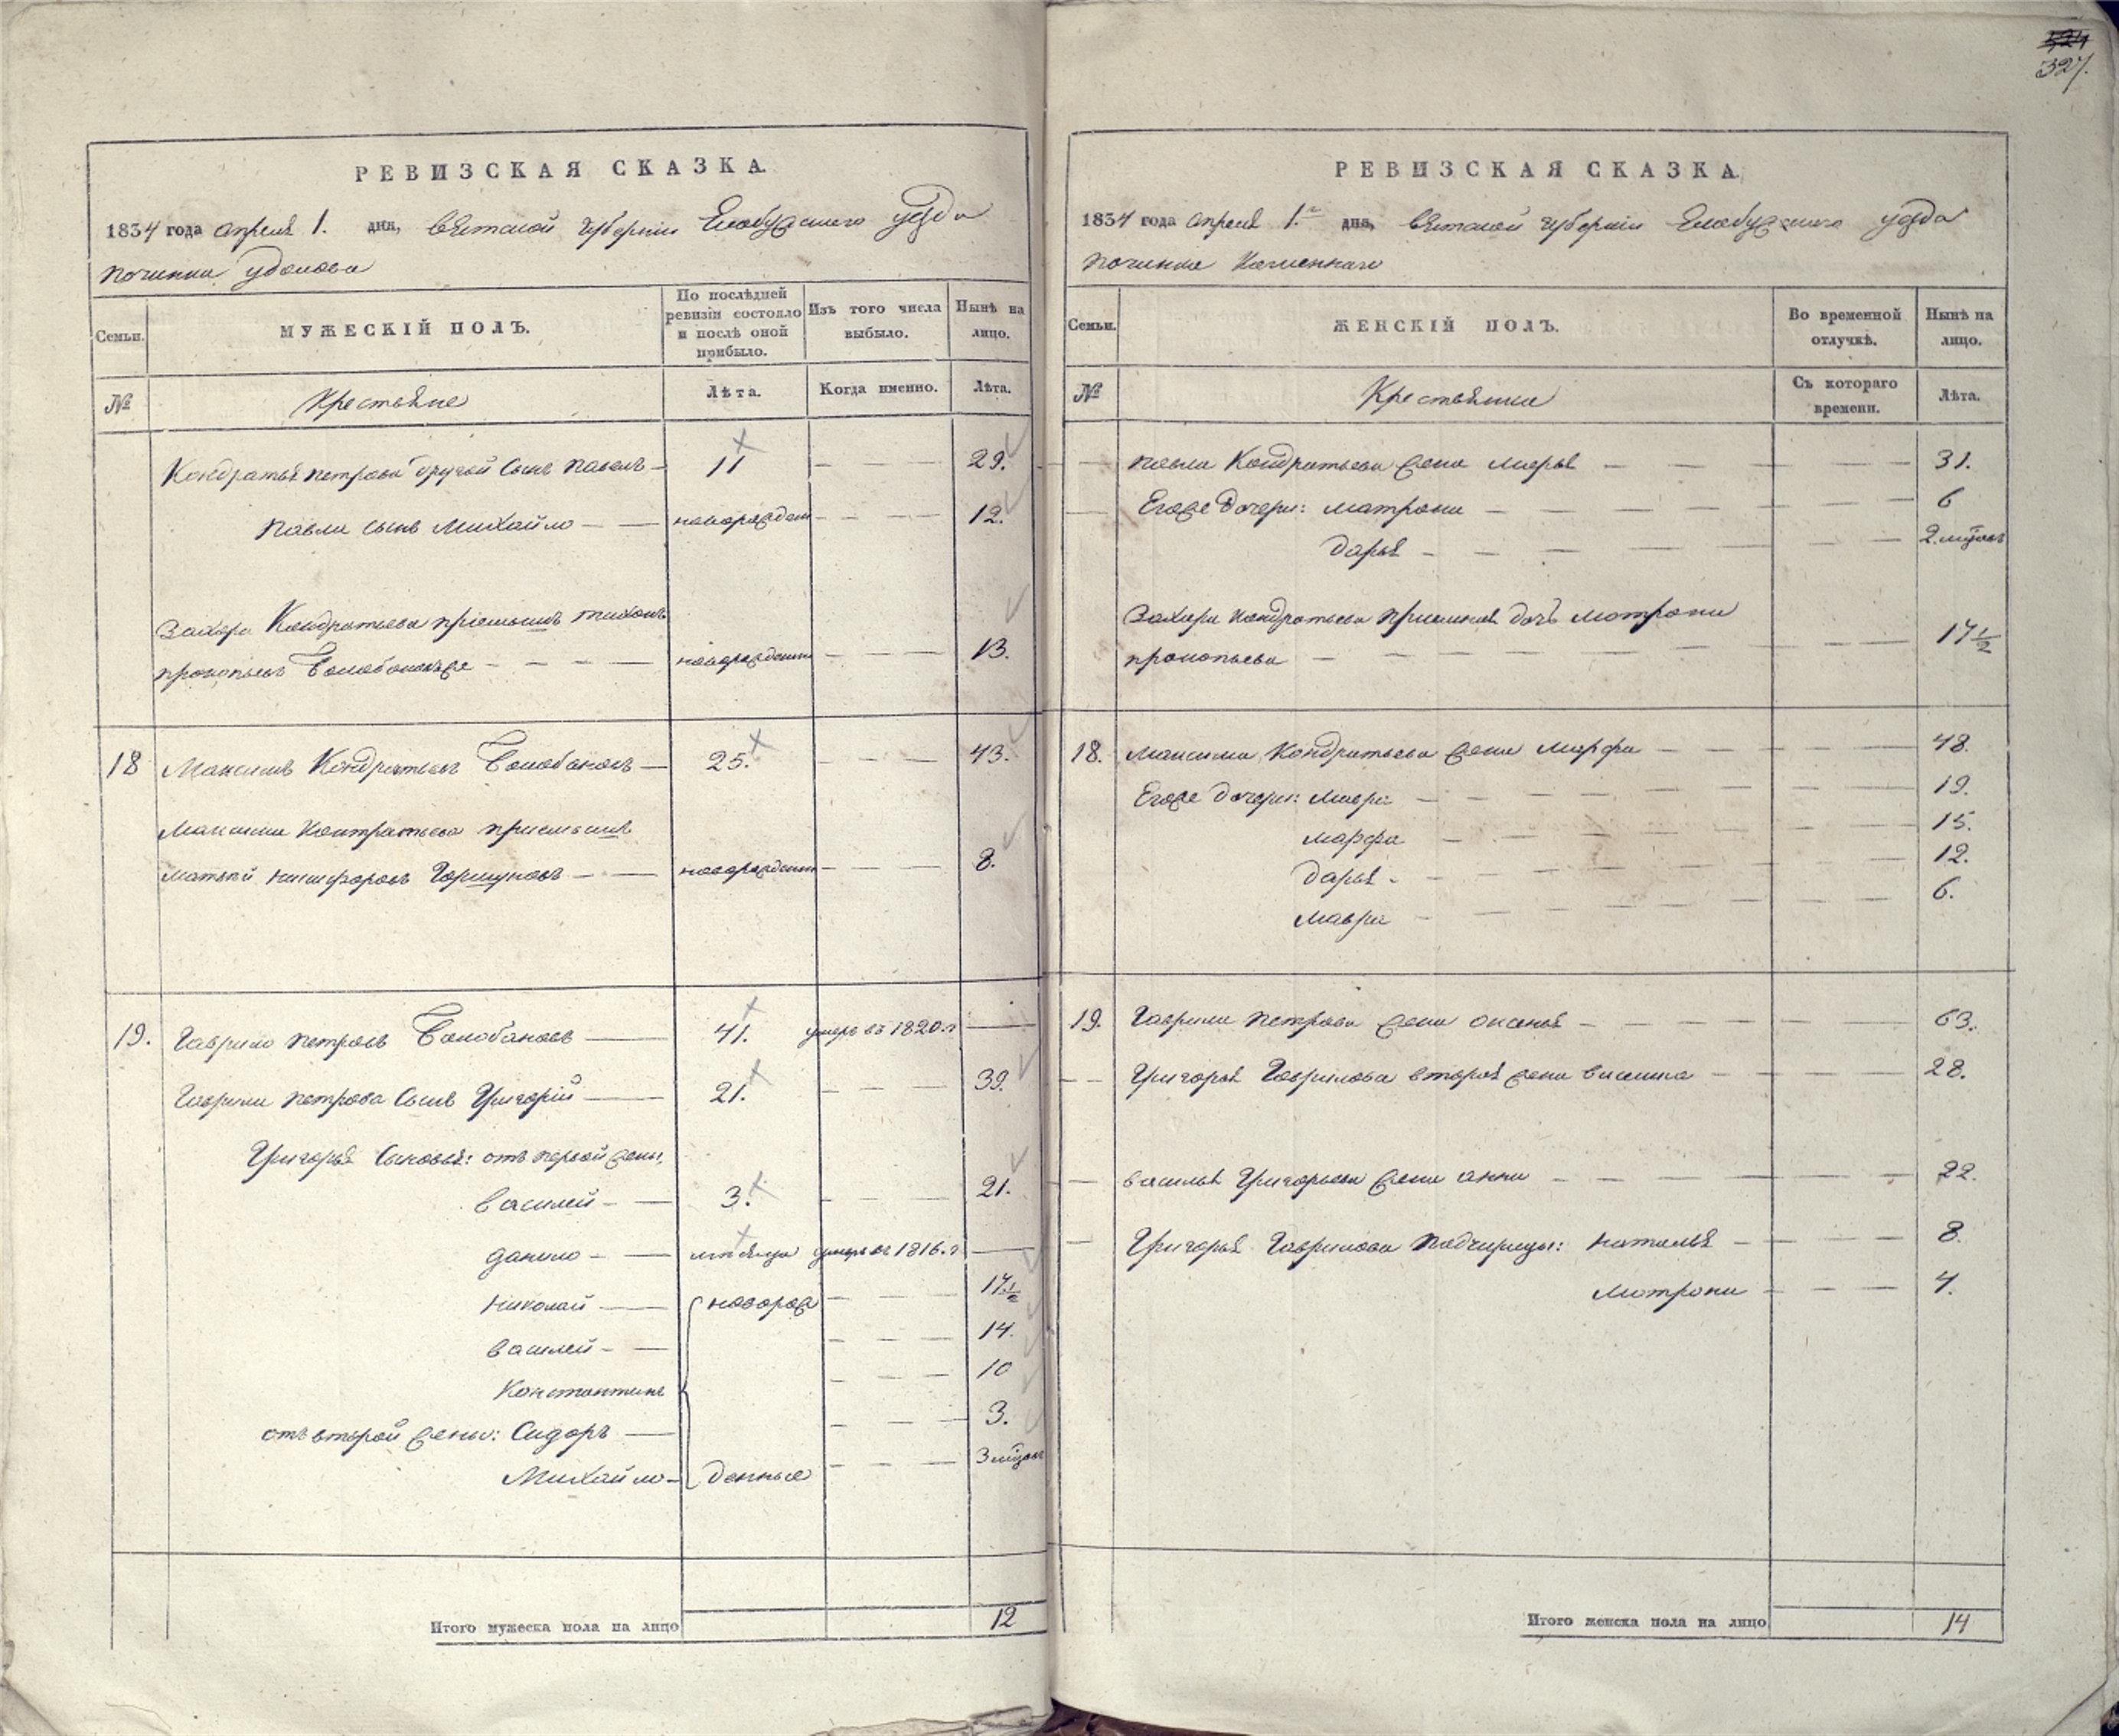 327.
РЕВИЗСКАЯ СКАЗКА.
1834 года апреля 1. дня, Вятской губернии Елабужского уезда
починка
Семьи.
МУЖЕСКІЙ ПОЛЪ.
По послѣдней ревизіи состояло и послѣ оной прибыло.
Изъ того числа выбыло.
Нынѣ на лицо.
№
Крестьяне
Лѣта.
Когда именно.
Лѣта.
Кондратья Петрова другой сынъ Павелъ — 11 — — 29.
Павла сынъ Михайло — — новорожден — — — 12.
Захара Кондратьева пріемышъ Тихонъ
Прокопьевъ — — — — новорожденн — — — 13.
18 Максимъ Кондратьевъ Балобановъ — 25. — — — 43.
Максима Контратьева пріемышъ
Матвей Никифоровъ Горшуновъ — — новорожденн — — — 8.
19. Гаврило Петровъ Балобановъ — 41. умеръ въ 1820.г —
Гаврила Петрова сынъ Григорій — 21. — — — 39.
Григорья сыновья: отъ первой жены,
Василей — — 3. — — — 21.
Данило — — умеръ въ 1816.г —
Николай — новорож — — — 17 1/2
Василей — — — — — 14.
Константинъ — — — 10
отъ второй жены: Сидоръ — — — — 3.
Михайло — денные — — — 3 мѣсяц
Итого мужеска пола на лицо 12
РЕВИЗСКАЯ СКАЗКА.
1834 года апреля 1. дня, Вятской губернии Елабужского уезда
починка Каменнаго
Семьи.
ЖЕНСКІЙ ПОЛЪ.
Во временной отлучкѣ.
Нынѣ на лицо.
№
Крестьянки
Съ котораго времени.
Лѣта.
— Павла Кондратьева жена Марья — — — — 31.
— Егоже дочери: Матрона — — — — 6
Дарья — — — — 2. мѣсяц
Захара Кондратьева дочь Матрона
Прокопьева — — — — 17 1/2
18. Максима Кондратьева жена Марфа — — — — 48.
Егоже дочери: Мавра — — — — 19.
Марфа — — — — 15.
Дарья — — — — 12.
Мавра — — — — 6.
19. Гаврила Петрова жена Оксенья — — — — 63.
— — Григорья Гаврилова вторая жена — — — — 28.
— Василья Григорьева жена Анна — — — — 22.
— Григорья Гаврилова падчерицы: Наталья — — — 8.
Матрона — — — 4.
Итого женска пола на лицо 14